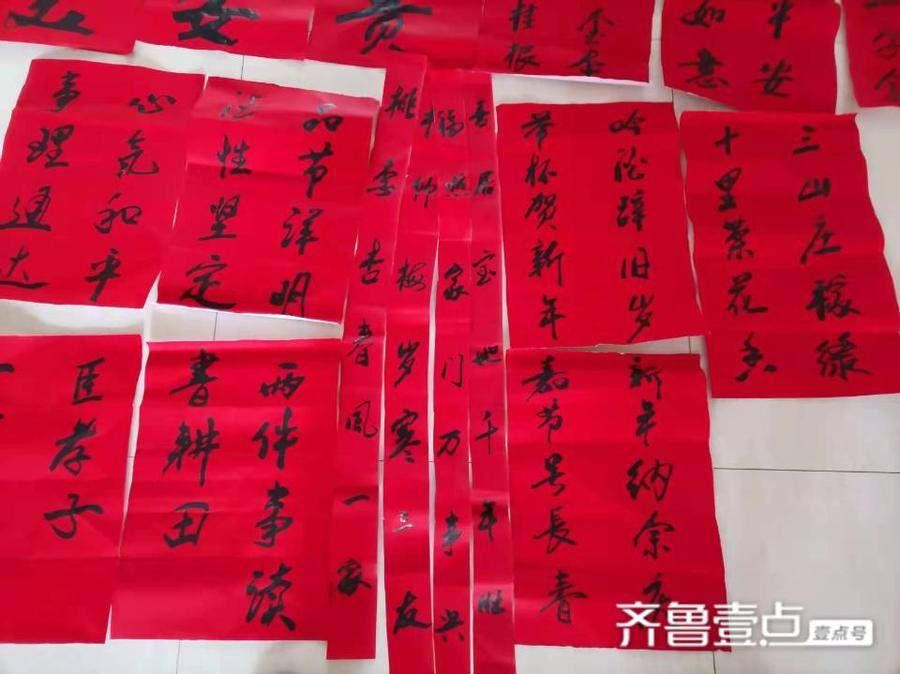 贵
桂根
平安
如意
心气和平
事理通达
品节详明
德性坚定
桃李杏春风一家
松竹梅岁寒三友
福照家门万事兴
吾居宝地千年旺
吟酒辞旧岁
举杯贺新年
三山庄稼绿
十里菜花香
臣孝子
两件事读
書耕田
新年纳余庆
嘉节号長春
齐鲁壹点
壹点号